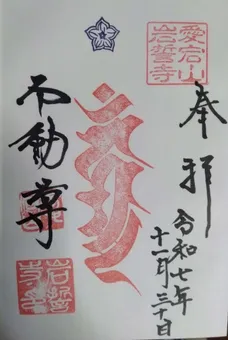 奉拝
愛宕山
岩誓寺
令和七年
十一月三十日
不動尊